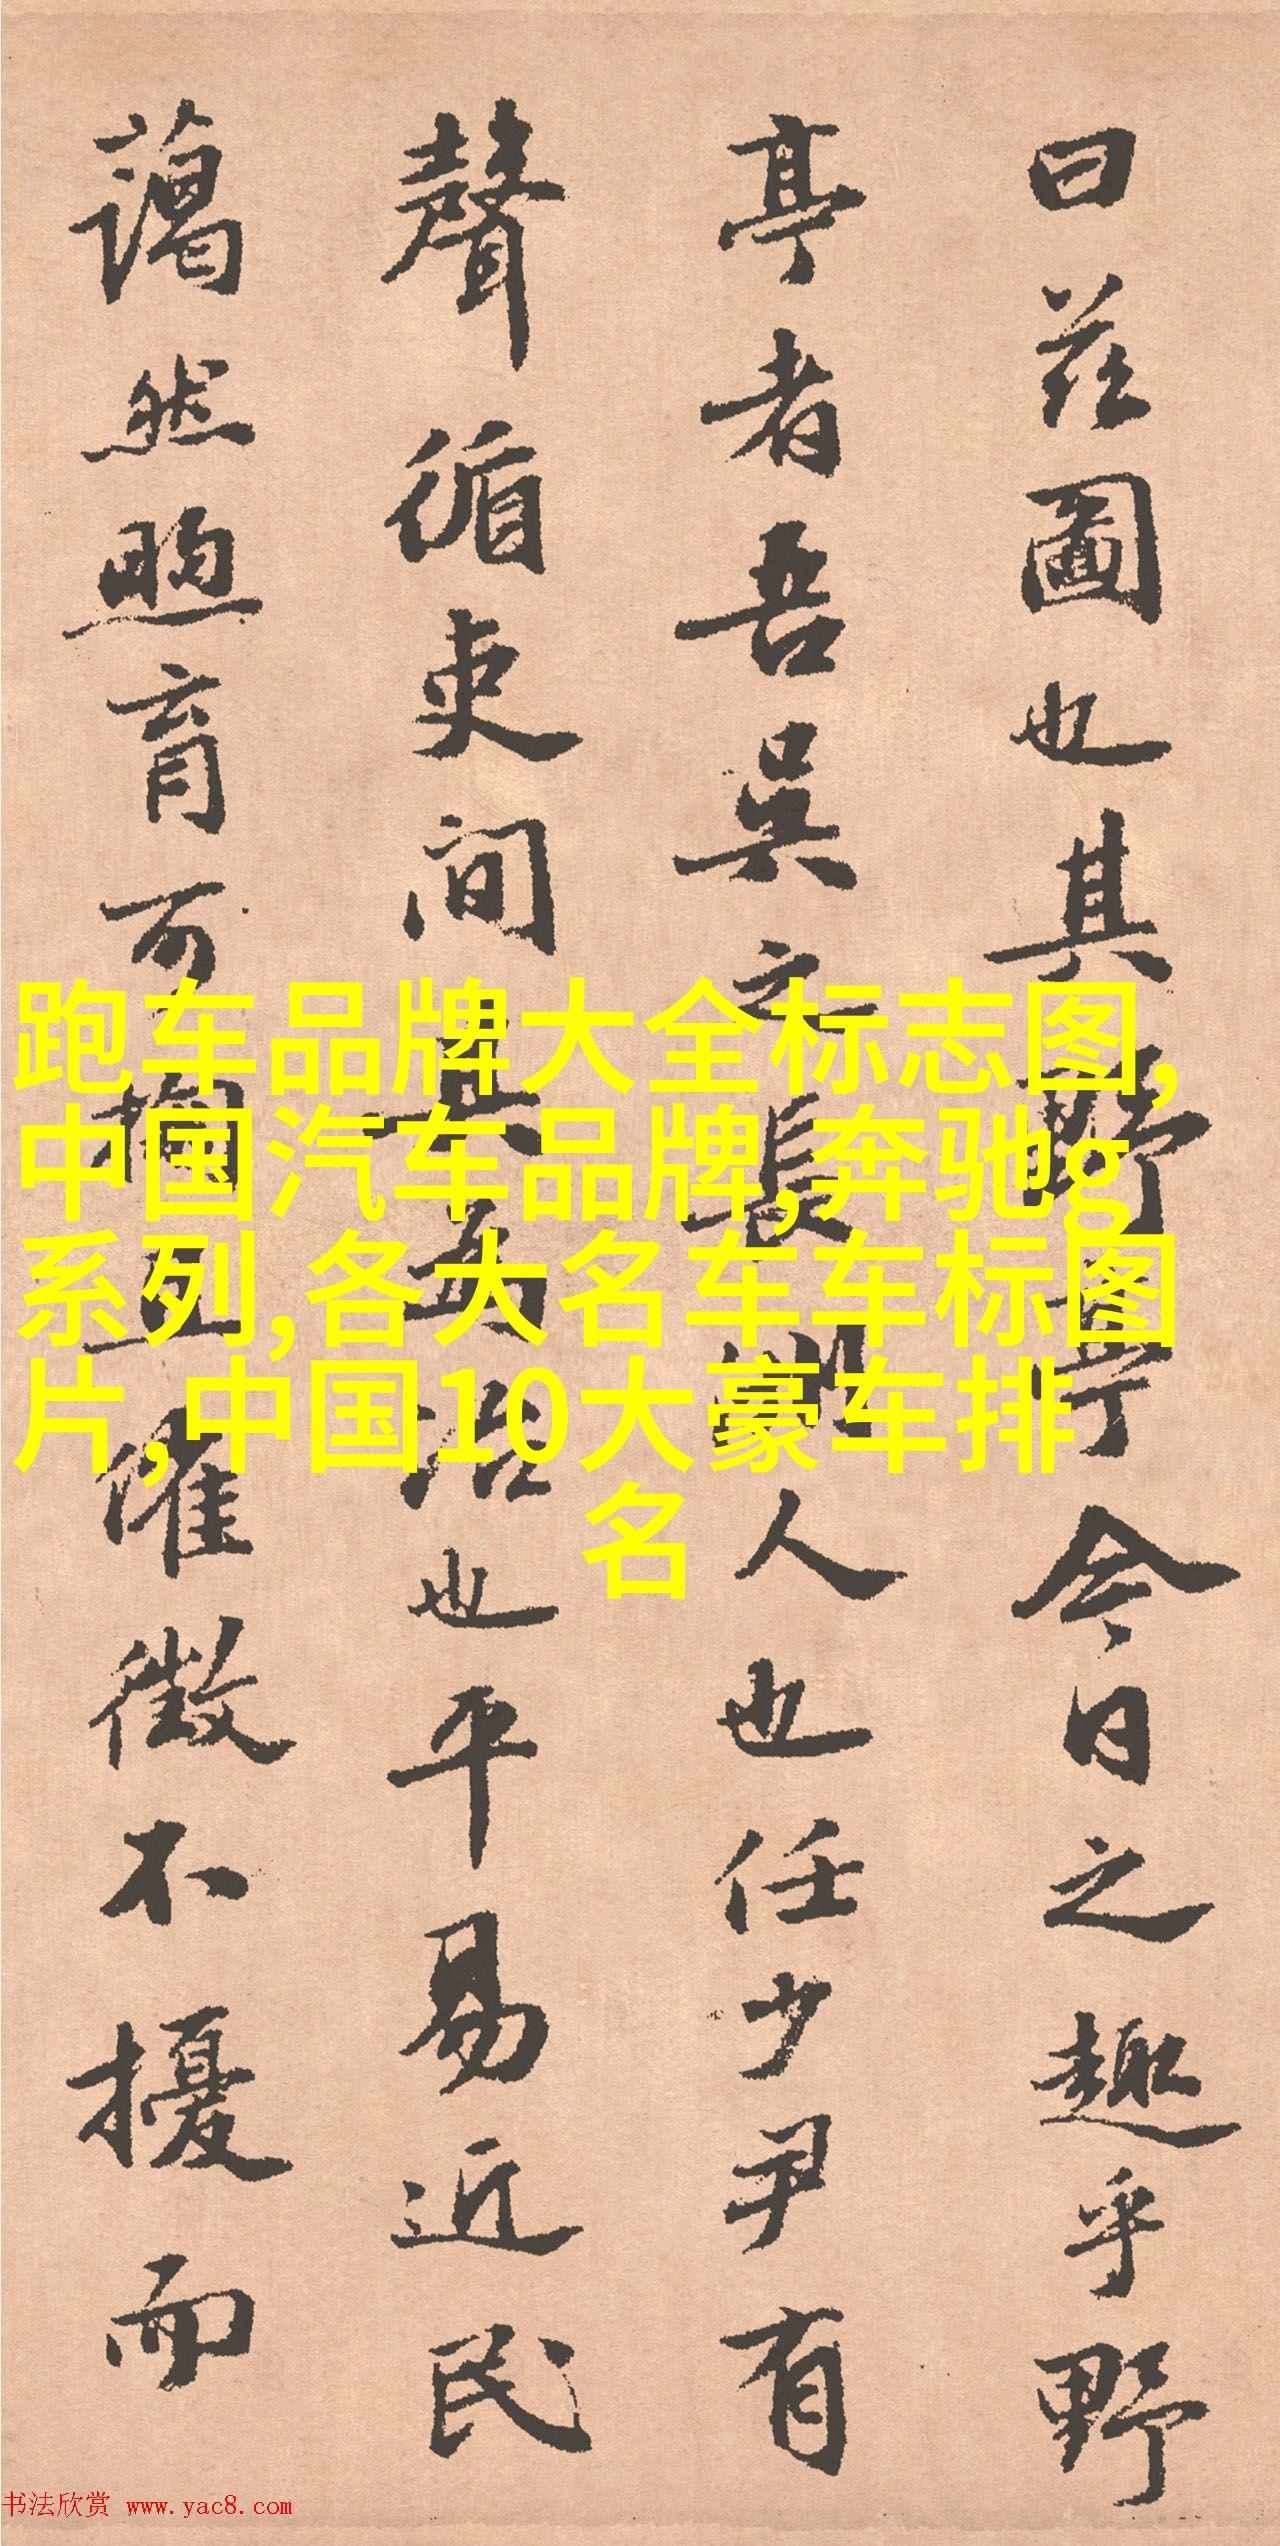 曰茲圖也其野亭今日之趣乎野
亭者吾吳之長洲人也任少尹有
聲循吏间其為治也平易近民
藹然煦育可掬且催徵不擾而
跑车品牌大全标志图,
中国汽车品牌,奔驰g
系列,各大名车车标图
片,中国10大豪车排
名
书法欣赏 www.yac8.com